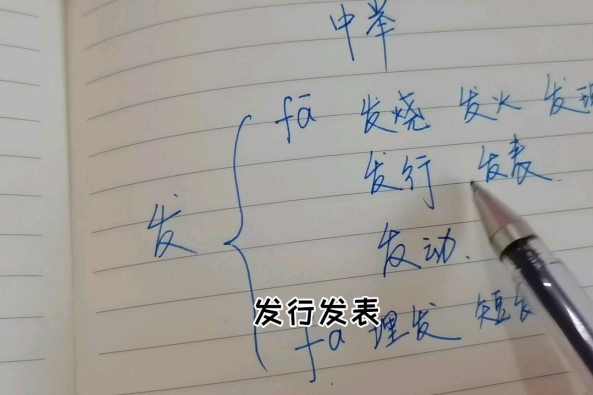 中举
fā 发烧 发火 发现
发行 发表
发
发动.
发行发表
fa 理发 短发